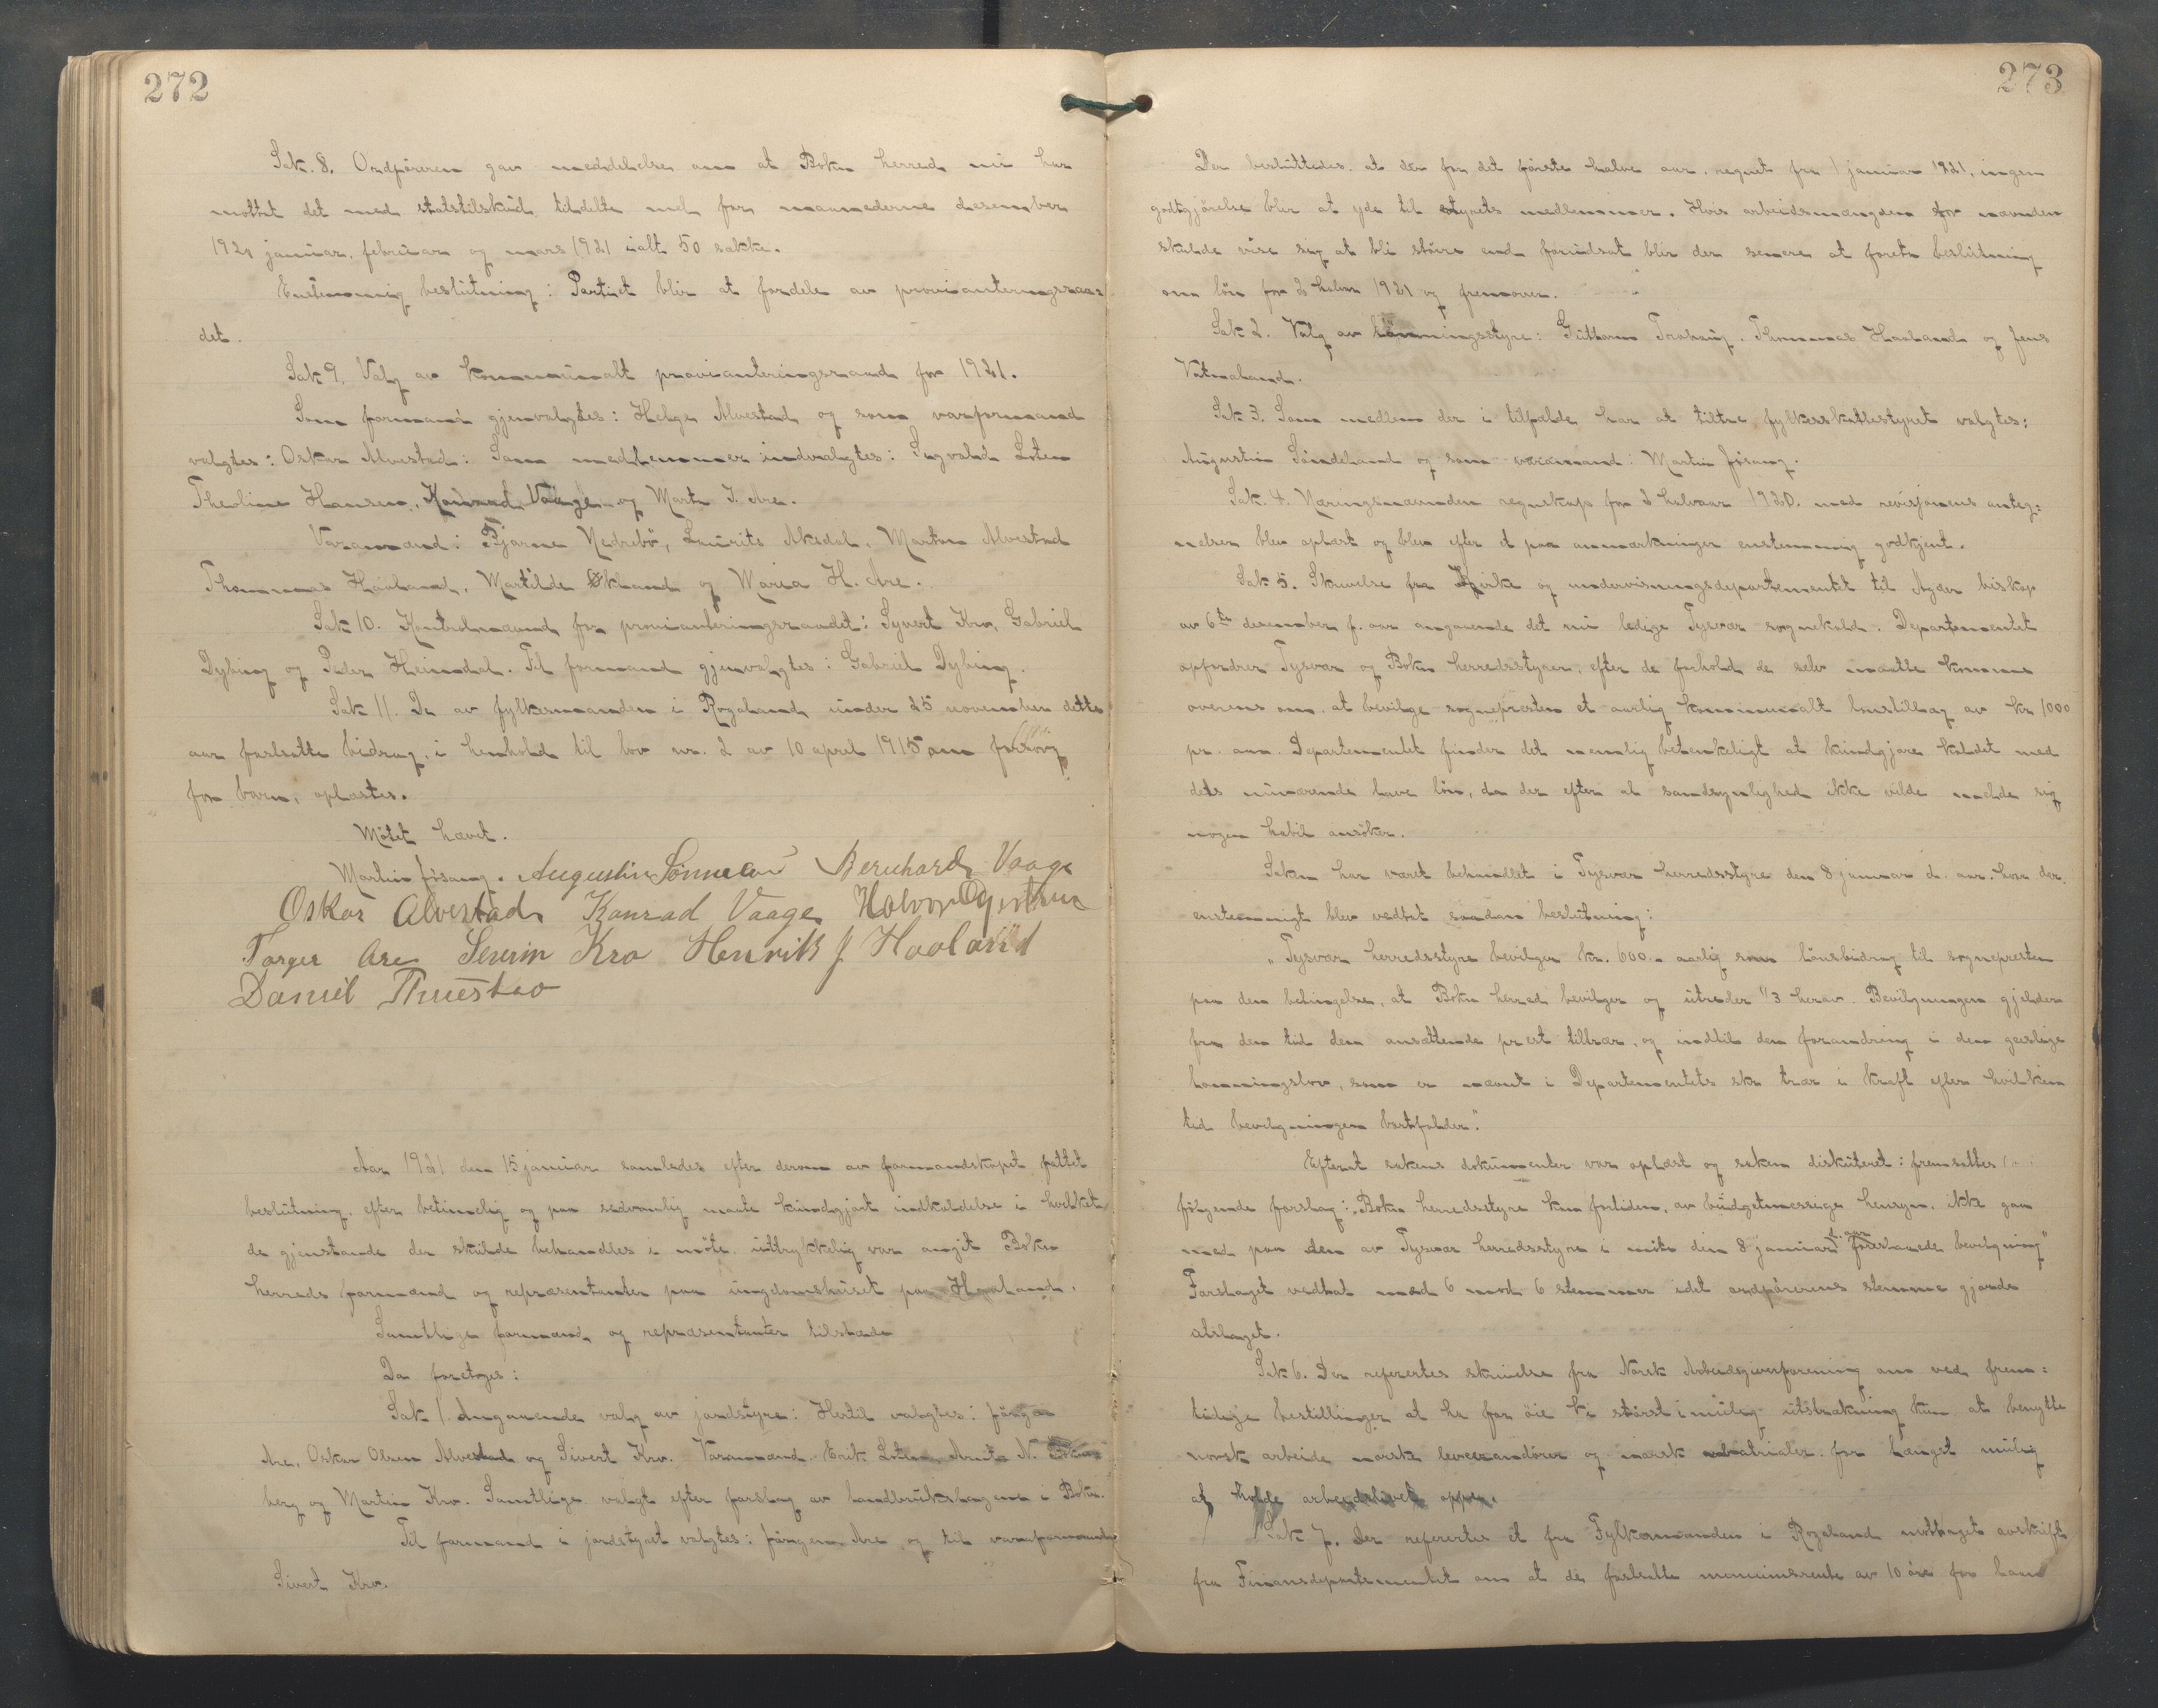 272
Sak. 8. Ordföreren gav meddelelse om at Bokn herred nü har
mottat det med statstilskud tildelte mel for maanederne desember
1920 januar, februar og mars 1921 ialt 50 sække.
Enstemmig beslutning: Partiet blir at fordele av provianteringsraa=
det.
Sak 9. Valg av kommunalt provianteringsraad for 1921.
Som formand gjenvalgtes: Helge Alvestad og som varformand
valgtes: Oskar Alvestad: Som medlemmer indvalgtes: Ingvald Loten
Theoline Hansen, Konrad Vaage og Marta T. Are.
Varamænd: Bjarne Nedrebö, Laurits Aksdal, Martin Alvestad
Thommas Haaland, Martilde Økland og Maria H. Are.
Sak 10. Kontrolnævnd for provianteringsraadet: Syvert Kro, Gabriel
Dybing og Peder Heimdal. Til formand gjenvalgtes: Gabriel Dybing.
Sak 11. De av fylkesmanden i Rogaland under 25 november dette
aar fastsatte bidrag, i henhold til lov nr. 2 av 10 april 1915 om forsorg
for barn, oplæstes.
Mötet hævet.
Martin Jösang. Augustin Sönne Bernhard Vaage
Oskar Alvestad Konrad Vaage Halvor
Torger Are Severin Kro Henrik J Haaland
Daniel Thuestao
Aar 1921 den 15 januar samledes efter derom av formandskapet fattet
beslutning, efter betimelig og paa sedvanlig maate kündgjort indkaldelse i hvilket
de gjenstande der skülde behandles i möte üttrykkelig var angit Bokn
herreds formænd og repræsentanter paa üngdomshüset paa Haaland.
Samtlige formænd og repræsentanter tilstede
Da foretoges:
Sak 1. Angaaende valg av jordstyre: Hertil valgtes: Jörgen
Are, Oskar Olsen Alvestad og Sivert Kro. Varamænd Erik Loten, Arnt N.
berg og Martin Kro. Samtlige valgt efter forslag av landbrükslagene i Bokn.
Til formand i jordstyret valgtes: Jörgen Are og til varaformand
Sivert Kro.
273
Der beslüttedes at der for det förste halve aar, regnet fra 1 januar 1921, ingen
godtgjörelse blir at yde til styrets medlemmer. Hvis arbeidsmængden for nævnden
skulde vise sig at bli större end forüdsat blir der senere at foreta beslütning
om lön for 2 halvaar 1921 og fremover.
Sak 2. Valg av lönningsstyre: Guttorm Trohaug. Thommas Haaland og Jens
Vatnaland.
Sak 3. Som medlem der i tilfælde har at tiltræ fylkesskattestyret valgtes:
Augustin Söndeland og som varamand: Martin Jösang.
Sak. 4. Næringsnævnden regnskap for 2 halvaar 1920. med revisjonens anteg=
nelser blev oplæst og blev efter et par anmærkninger enstemmig godkjent.
Sak 5. Skrivelse fra Kirke og undervisningsdepartementet til Agder biskop
av 6te desember f. aar angaaende det nü ledige Tysvær sognekald. Departementet
opfordrer Tysvær og Bokn herredsstyrer, efter de forhold de selv maatte komme
overens om, at bevilge sognepresten et aarlig kommunalt lønstillæg av kr 1000
pr. aar. Departementet finder det nemlig betenkeligt at kündgjøre kaldet med
dets nüværende lave lön, da der efter al sandsynlighed ikke vilde melde sig
nogen habil ansöker.
Saken har været behandlet i Tysvær herredsstyre den 8 januar d. aar. hvor der
enstemmigt blev vedtat saadan beslutning:
"Tysvær herredsstyre bevilger kr. 600.- aarlig som lönsbidrag til sognepresten
paa den betingelse, at Bokn herred bevilger og ütreder 1/3 herav. Bevilgningen gjelder
fra den tid den ansættende prest tiltrær, og indtil den forandring i den geistlige
lønningslov, som er nævnt i Departementets skr trær i kraft efter hvilken
tid bevilgningen bortfalder."
Efterat sakens dokümenter var oplæst og saken disküteret: fremsattes
fölgende forslag: "Bokn herredsstyre kan fortiden, av büdgetmessige hensyn, ikke gaa
med paa den av Tysvær herredsstyre i möte den 8 januar d. aar foreslaaede bevilgning"
Forslaget vedtat med 6 mod 6 stemmer idet ordförerens stemme gjorde
utslaget.
Sak 6. Der referertes skrivelse fra Norsk Arbeidsgiverforening om ved frem=
tidige bestillinger at ha for öie i störst mulig ütstrækning kün at benytte
norsk arbeide norske leverandörer og norsk materialer for længst mülig
at holde arbeidslivet oppe.
Sak 7. Der refererter et fra Fylkesmanden i Rogaland mottaget avskrift
fra Finansdepartementet om at de fastsatte minimumsrente av 10 öre for